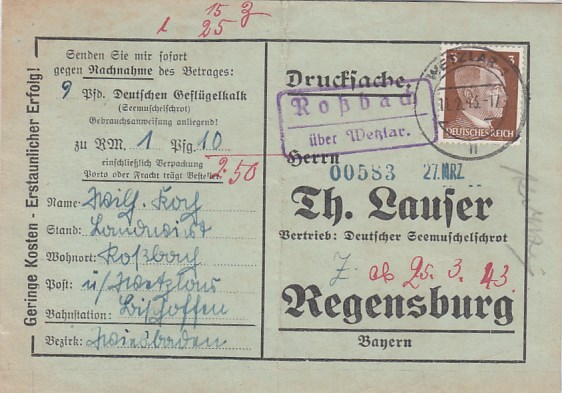 15 Z
1 25
Geringe Kosten - Erstaunlicher Erfolg!
Senden Sie mir sofort
gegen Nachnahme des Betrages:
9 Pfd. Deutschen Geflügelkalk
(Seemuschelschrot)
Gebrauchsanweisung anliegend!
zu RM. 1 Pfg. 10
einschließlich Verpackung
Porto oder Fracht trägt Besteller
2.50
Name: Wilh. Koch
Stand: Landwirt
Wohnort: Roßbach
Post: ü/Wetzlar
Bahnstation: Bischoffen
Bezirk: Wiesbaden
Drucksache.
Roßbach
über Wetzlar.
WETZLAR 2
3
DEUTSCHES REICH
Herrn
00583 27. MRZ
Th. Lauser
Vertrieb: Deutscher Seemuschelschrot
Z. ab 25. 3. 43.
Regensburg
Bayern